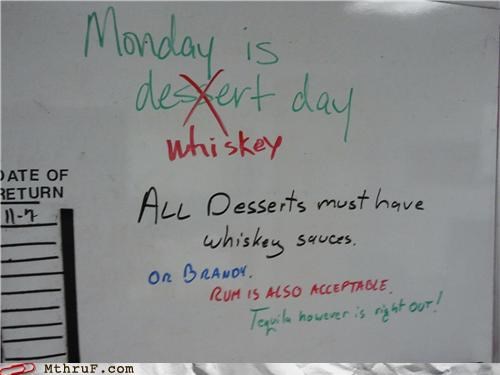 Monday is
dessert day
whiskey
DATE OF
RETURN
11-7
ALL Desserts must have
whiskey sauces.
OR BRANDY.
RUM IS ALSO ACCEPTABLE.
Tequila however is right OUT!
MThruF.com